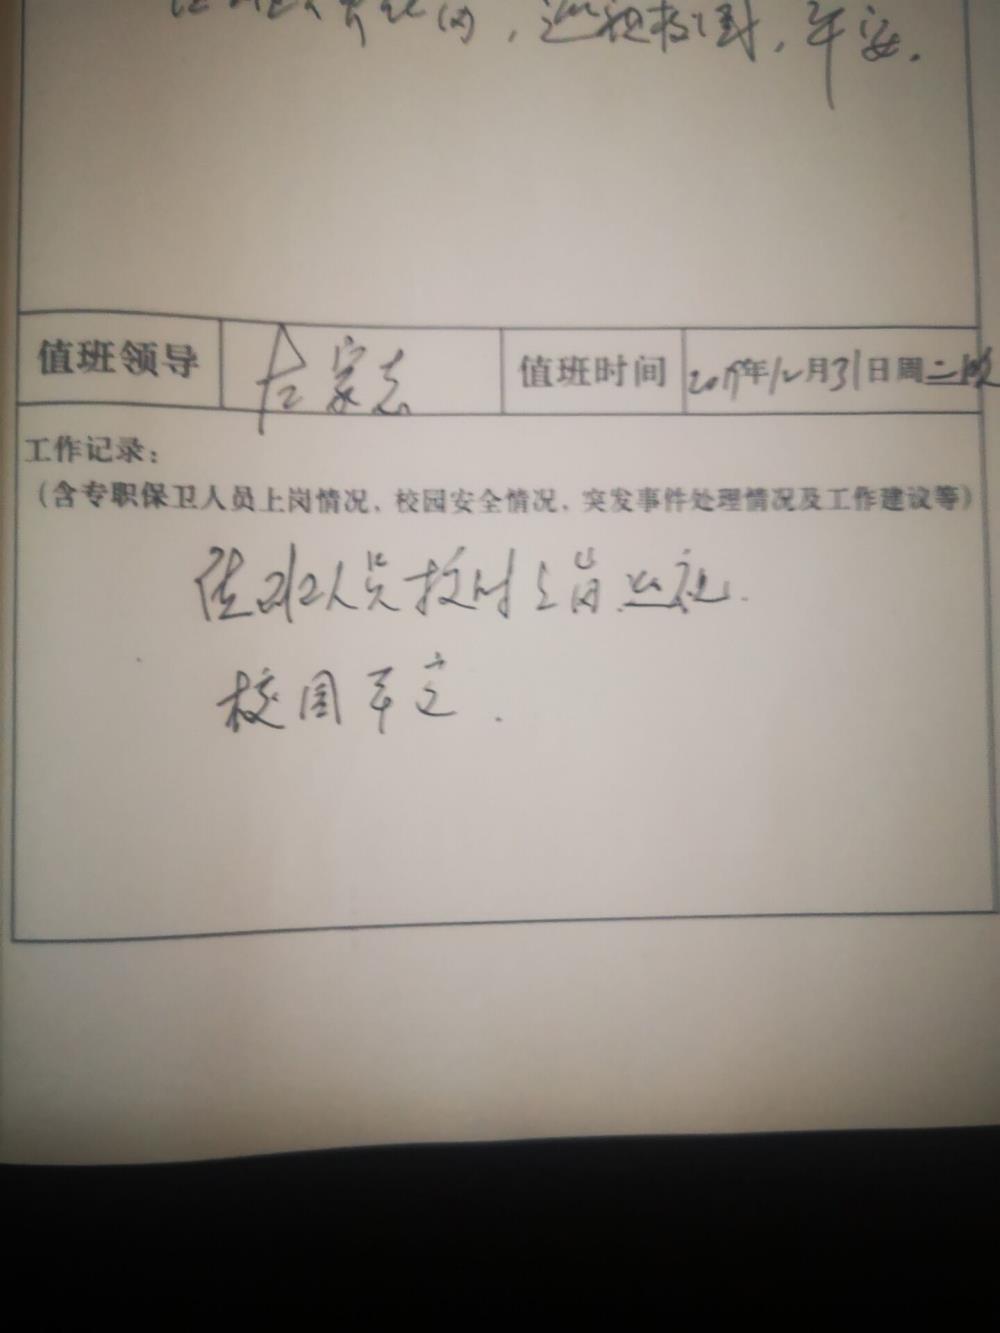 ，巡视校园，平安.
值班领导 左家志 值班时间 2019年12月31日周二晚
工作记录：
（含专职保卫人员上岗情况、校园安全情况、突发事件处理情况及工作建议等）
值班人员按时上岗巡视.
校园平安.